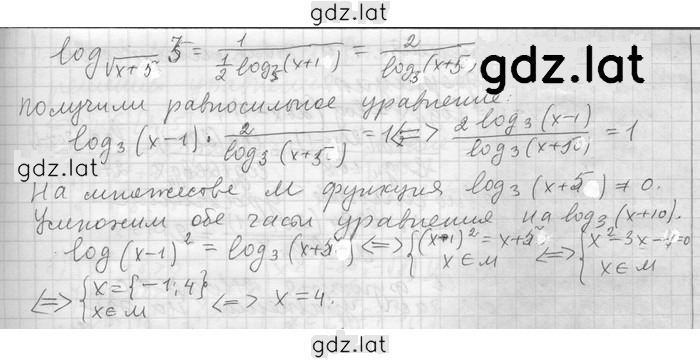 gdz.lat
log_{√x+5} 3 = 1/(1/2 log_3(x+1)) = 2/log_3(x+5)
gdz.lat
Получили равносильное уравнение:
log_3(x-1) · 2/log_3(x+5) = 1 <=> 2log_3(x-1)/log_3(x+5) = 1
gdz.lat
gdz.lat
На множестве M функция log_3(x+5) ≠ 0.
Умножим обе часы уравнения на log_3(x+10).
log(x-1)^2 = log_3(x+5) <=> {(x-1)^2 = x+5 x∈M <=> {x^2-3x-4=0 x∈M
<=> {x={-1;4} x∈M <=> x=4.
gdz.lat